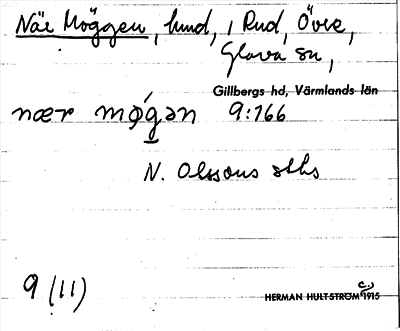 När Möggen, lund, i Rud, Övre,
Glava sn,
Gillbergs hd, Värmlands län
nær møgən 9:766
N. Olssons
9 (11)
HERMAN HULTSTRÖM 1915